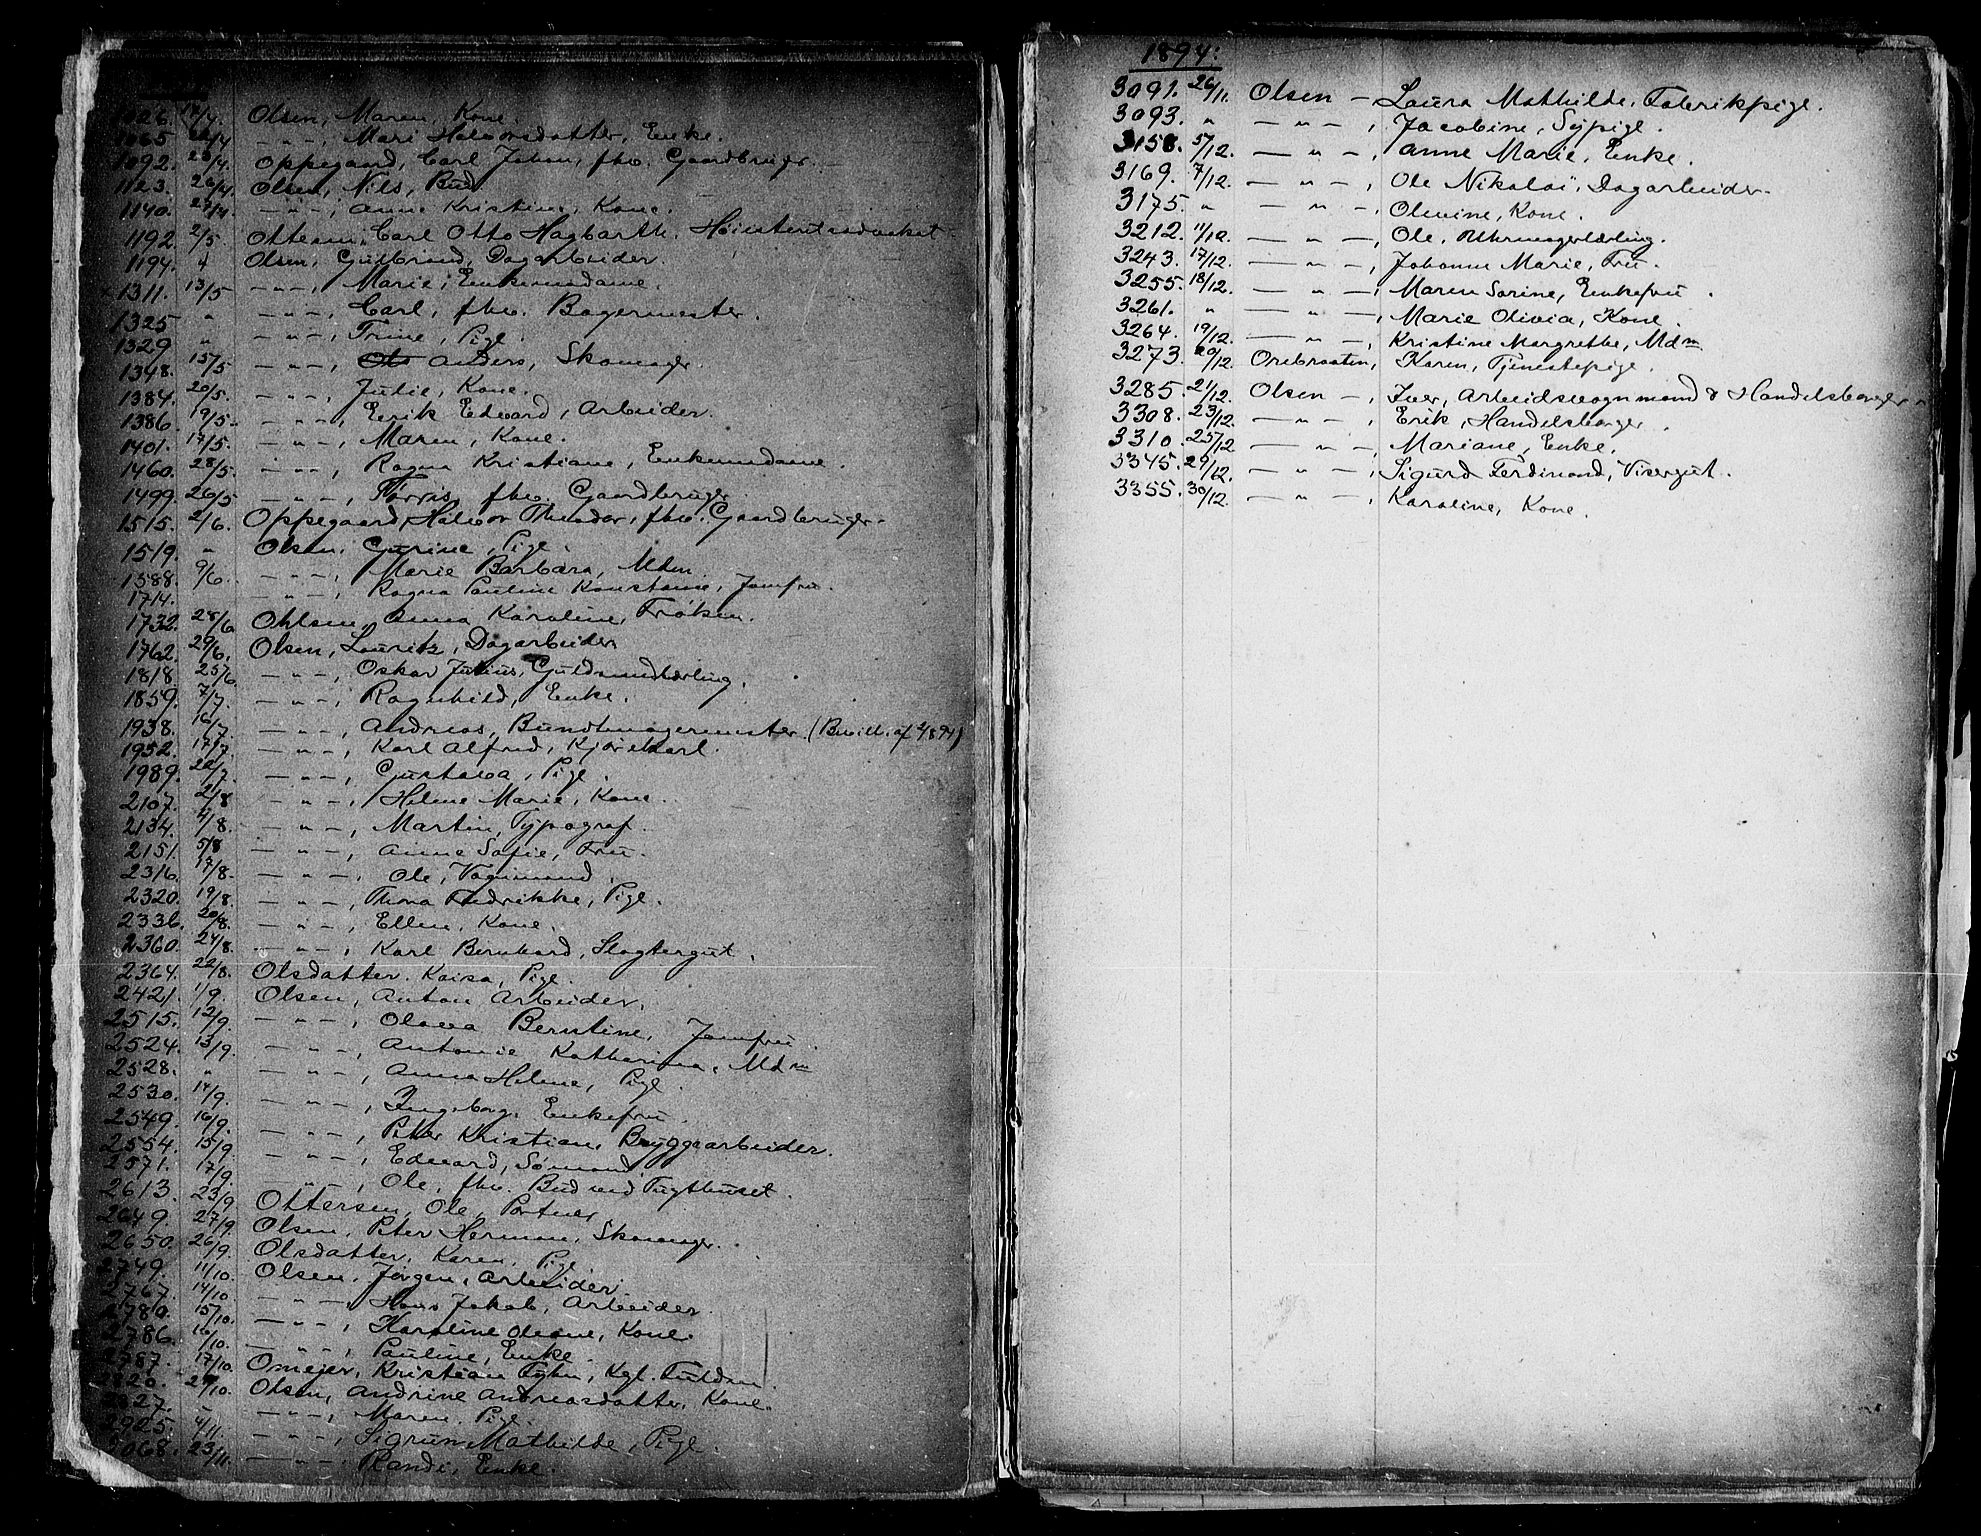 1026. 17/4. Olsen, Maren, Kone.
1065 /4 — " —, Mari Halvorsdatter, Enke.
1092. /4. Oppegaard, Carl Johan, fhv. Gaardbruger.
1123. 26/4. Olsen, Nils, Bud
1140. 27/4. — " —, Anne Kristine, Kone.
1192 2/5. Ottesen, Carl Otto Hagbarth, Høiesteretsadvokat
1194. " Olsen, Gulbrand, Dagarbeider.
1311. 13/5 — " —, Marie, Enkemadame.
1325 " — " —, Carl, fhv. Bagermester.
1329 " — " —, Trine, Pige.
1348. 15/5 — " —, Anders, Skomager.
1384. 20/5. — " —, Julie, Kone.
1386. 19/5. — " —, Eerik Edvard, Arbeider.
1401. 17/5. — " —, Maren, Kone.
1460. 28/5. — " —, Ragna Kristiane, Enkemadame.
1499. 26/5 — " —, Tørris, fhv. Gaardbruger.
1515. 2/6. Oppegaard, Halvor Theodor, fhv. Gaardbruger.
1519. " Olsen, Gurine, Pige.
1588. 9/6. — " —, Marie Barbara, Mdm.
1714. — " —, Ragna Pauline Konstanse, Jomfru.
1732. 28/6 Ohlsen, Anna Karoline, Frøken.
1762. 29/6. Olsen, Lauritz, Dagarbeider
1818. 25/6. — " —, Oskar Julius, Guldsmedlærling.
1859. 7/7. — " —, Ragnhild, Enke.
1938. 16/7. — " —, Andreas, Bundtmagermester. (Bevill. af 2/8 94)
1952. 17/7. — " —, Karl Alfred, Kjørekarl.
1989. /7. — " —, Gustava, Pige.
2107. 2/8 — " —, Helene Marie, Kone.
2134. 4/8. — " —, Martin, Typograf.
2151. 5/8 — " —, Anne Sofie, Fru.
2316. 17/8. — " —, Ole, Vognmand.
2320. 19/8. — " —, Thora Fredrikke, Pige.
2336. 20/8. — " —, Ellen, Kone.
2360. 24/8. — " —, Karl Bernhard, Slagtergut.
2364. 22/8. Olsdatter. Kaisa, Pige.
2421. 1/9. Olsen, Anton Arbeider.
2515. 12/9. — " —, Olava Berntine, Jomfru.
2524. 13/9. — " —, Antonie Katharina, Mdm
2528. " — " —, Anna Helene, Pige.
2530. 14/9. — " —, Ingeborg, Enkefru.
2549. 16/9. — " —, Peter Kristian, Bryggearbeider.
2554. 15/9. — " —, Edvard, Sømand.
2571. 17/9. — " —, Ole, fhv. Bud ved Tugthuset.
2613. 23/9 Ottersen, Ole, Portner
2649. 27/9. Olsen, Peter Herman, Skomager.
2650. 26/9. Olsdatter, Karen, Pige
2749. 11/10. Olsen, Jørgen, Arbeider.
2767. 14/10 — " —, Hans Jakob, Arbeider.
2780. 15/10. — " —, Karoline Oleane, Kone.
2786. 16/10. — " —, Pauline, Enke.
2787. 17/10. Omejer, Kristian Fyhn, Kgl. Fuldm.
/10. Olsen, Andrine Andreasdatter, Kone.
" — " —, Maren, Pige.
2925. 4/11. — " —, Sigrun Mathilde, Pige.
3068. 23/11. — " —, Randi, Enke.
1894:
3091. 26/11. Olsen —, Laura Mathilde, Fabrikpige.
3093. " — " —, Jacobine, Sypige.
3158. 5/12. — " —, Anne Marie, Enke.
3169. 7/12. — " —, Ole Nikolai, Dagarbeider.
3175. " — " —, Olevine, Kone.
3212. 11/12. — " —, Ole, Uhrmagerlærling.
3243. 17/12. — " —, Johanne Marie, Fru.
3255. 18/12. — " —, Maren Sorine, Enkefru.
3261. " — " —, Marie Olivia, Kone.
3264. 19/12. — " —, Kristine Margrethe, Mdm
3273. 20/12. Orebraaten, Karen, Tjenestepige.
3285. 21/12. Olsen —, Iver, Arbeidsvognmand & Handelsborger.
3308. 23/12. — " —, Erik, Handelsborger.
3310. 25/12 — " —, Mariane, Enke.
3345. 29/12. — " —, Sigurd Ferdinand, Visergut.
3355. 30/12. — " —, Karoline, Kone.